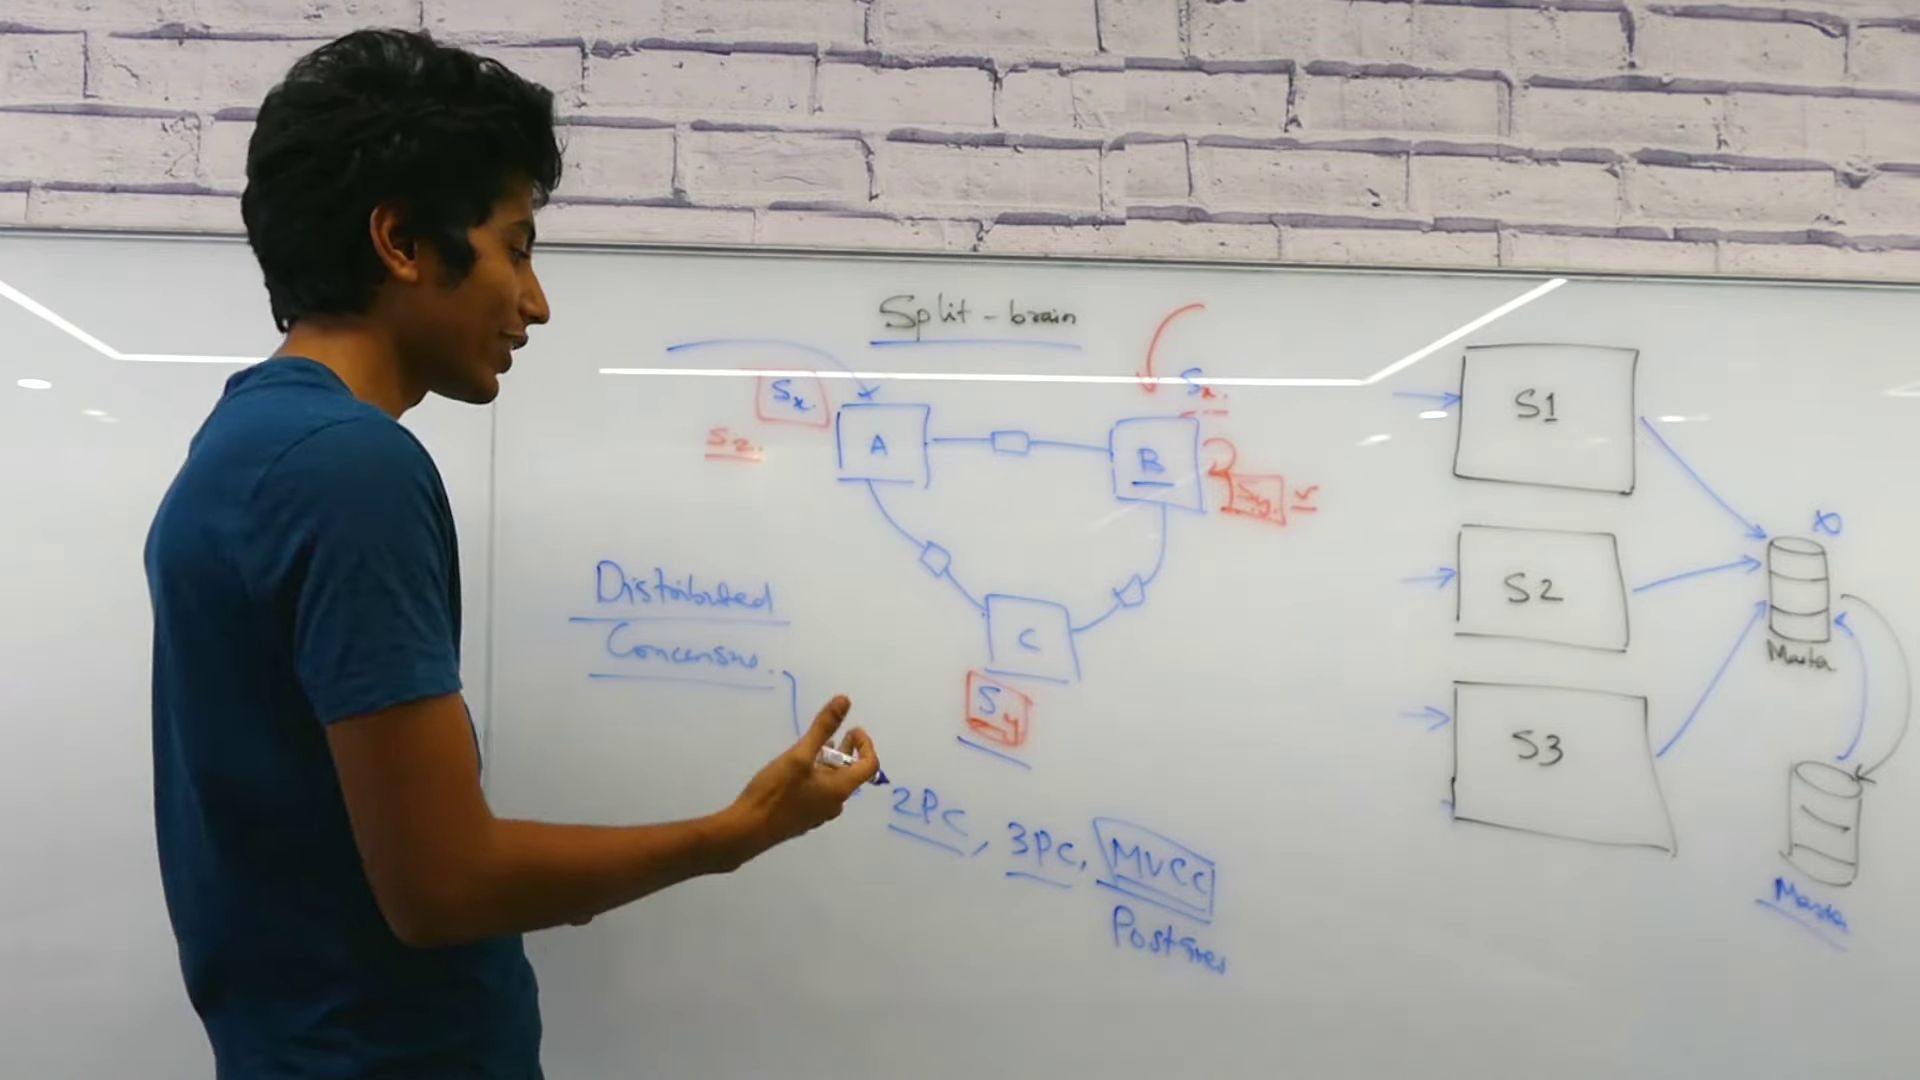 Split-brain
Sx
Sx.
Sz.
A
B
Sy.
Distributed
Concensus.
C
Sy
2PC, 3PC, MVCC
Postgres
S1
S2
S3
Master
Master